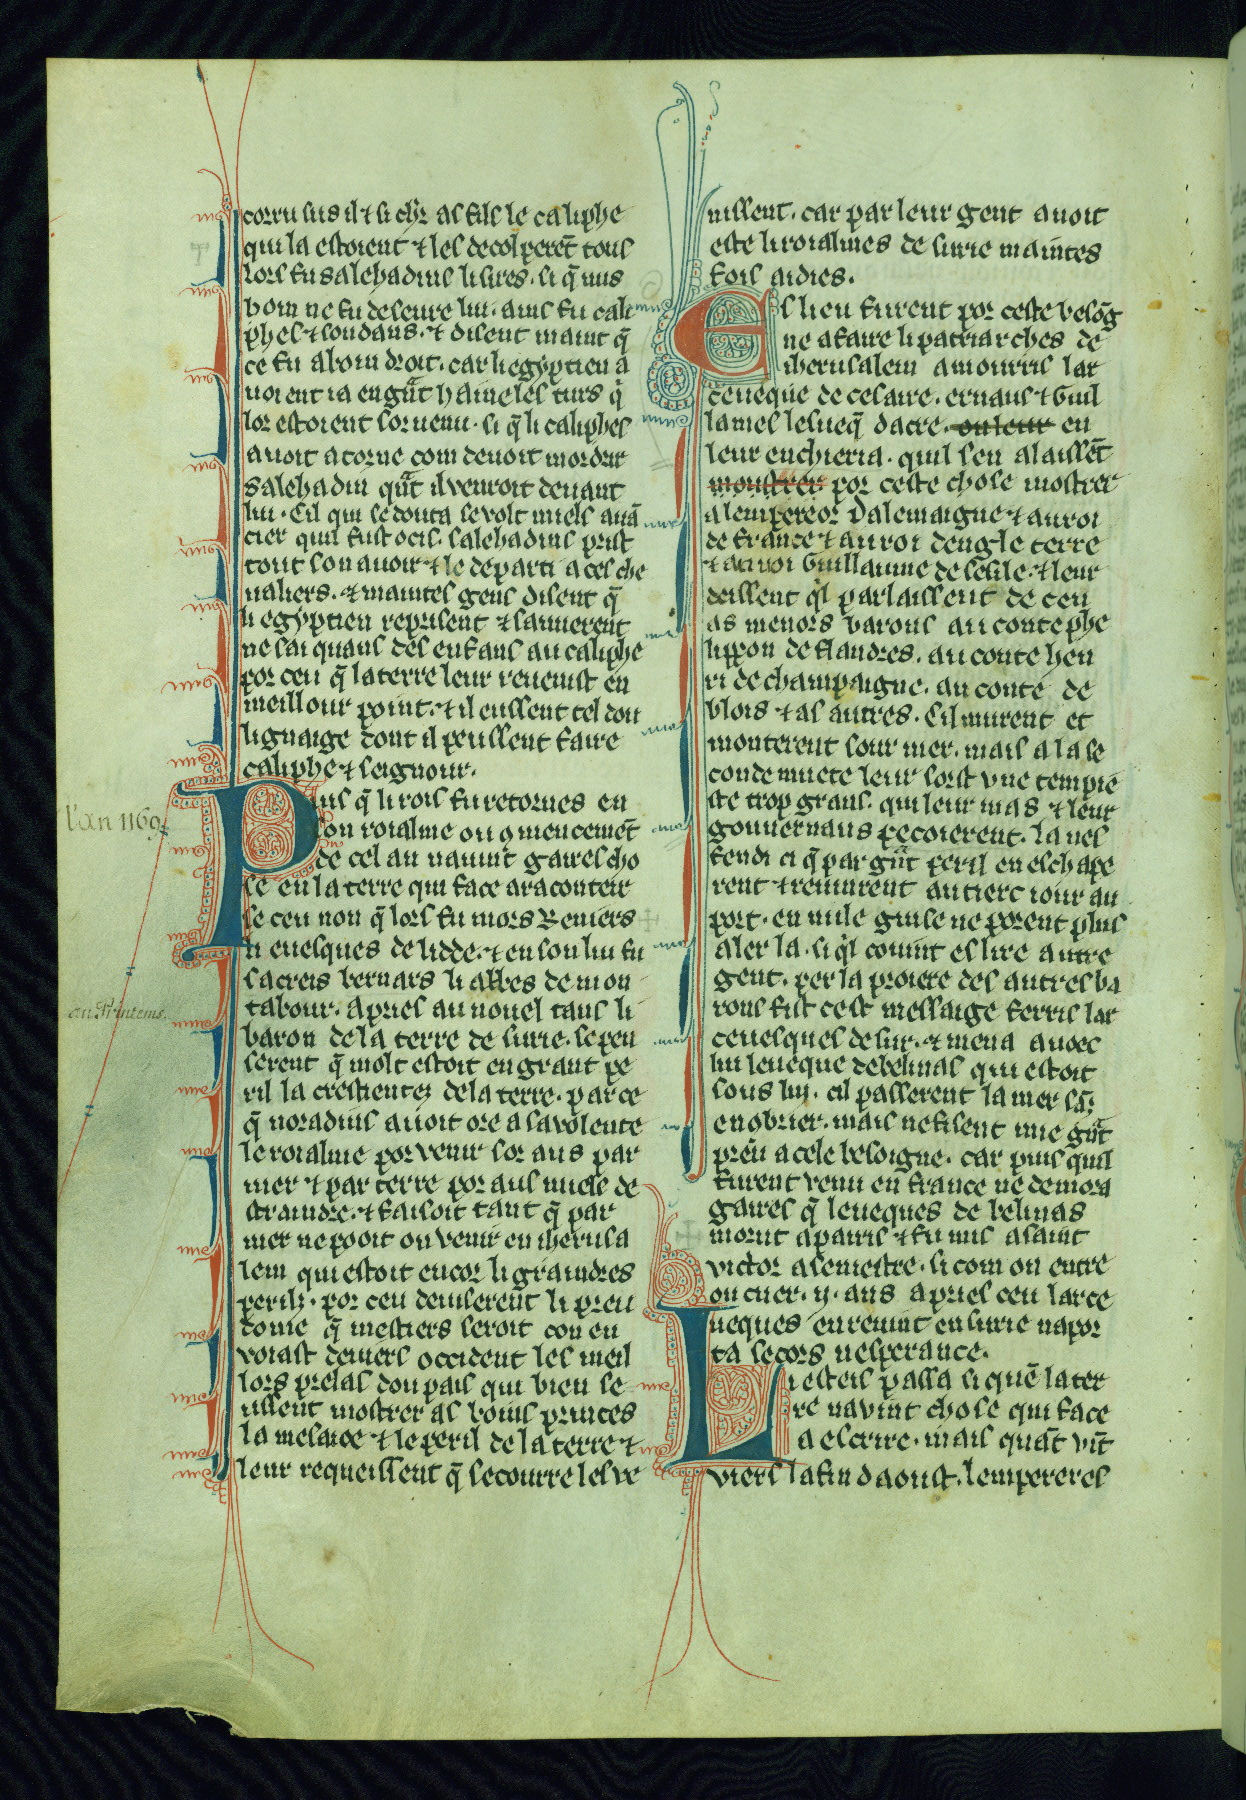 corru sus il ⁊ si chl̄r as fils le caliphe
qui la estoient ⁊ les decolperēt tous
lors fu salehadins li sires. si q̄ nus
hom ne fu deseure lui. ains fu cali
phes ⁊ soudans. ⁊ disent maint q̄
ce fu a boin droit. car li egyptien a
uoient ia en gn̄t haine les turs q̄
lor estoient soruenu. si q̄ li caliphes
auoit atorne com deuoit mordrir
salehadin qn̄t il venroit deuant
lui. Cil qui se douta se volt miels auā
cier quil fust ocis. salehadins prist
tout son auoir ⁊ le departi a ces che
ualiers. ⁊ maintes gens disent q̄
li egyptien reprisent ⁊ sauuerent
ne sai quans des enfans au caliphe
por ceu q̄ la terre leur reuenist en
meillour point. ⁊ il eussent tel dou
lignaige dont il peussent faire
caliphe ⁊ seignour.
Puis q̄ li rois fu retornes en
l'an 1169.
son roialme ou ꝯmencemēt
de cel an nauint gaires cho
se en la terre qui face a raconteir
se ceu non q̄ lors fu mors Reniers
li euesques de lidde. ⁊ en son liu fu
sacreis bernars li abbes de mon
au Printems.
tabour. Apries au nouel tans li
baron de la terre de surie. se pen
serent q̄ molt estoit en grant pe
ril la crestientez de la terre. par ce
q̄ noradins auoit ore a sa volente
le roialme por venir sor aus par
mer ⁊ par terre por aus miels de
straindre. ⁊ faisoit tant q̄ par
mer ne pooit on venir en iherusa
lem qui estoit encor li graindres
perilz. por ceu deuiserent li preu
dome q̄ mestiers seroit con en
voiast deuiers occident les meil
lors prelas dou pais qui bien se
ussent mostrer as boins princes
la mesaise ⁊ le peril de la terre ⁊
leur requeissent q̄ secourre les ve
nissent. car par leur gent auoit
este li roialmes de surie maintes
fois aidies.
Eslieu furent por ceste besōg
ne a faire li patriarches de
iherusalem amourris lar
ceueque de cesaire. ernaus ⁊ Guil
lames lesueq̄ dacre. ou leur en
leur enchieria. quil sen alaissēt
moustrer por ceste chose mostrer
a lempereor Dalemaigne ⁊ au roi
de france ⁊ au roi dengleterre
⁊ au roi Guillaume de sesile. ⁊ leur
deissent ql̄ parlaissent de ceu
as menors barons au conte phe
lippon de flandres. au conte hen
ri de champaigne. au conte de
blois ⁊ as autres. Cil murent et
monterent sour mer. mais a la se
conde nuete leur sorst vne tempie
ste trop grans. qui leur mas ⁊ leur
gouuernaus pecoierent. la nes
fendi ci q̄ par gn̄t peril en eschape
rent ⁊ reuinrent au tierc iour au
port. en nule guise ne porent plus
aler la. si ql̄ couint eslire autre
gent. per la proiere des autres ba
rons fist cest messaige ferris lar
ceuesques de sur. ⁊ mena auoec
lui leueque de belinas qui estoit
sous lui. cil passerent la mer sā3
enobrier. mais ne fisent mie gn̄t
preu a cele besoigne. car puis quil
furent venu en france ne demora
gaires q̄ leueques de belinas
morut a pairis ⁊ fu mis a saint
victor a senestre. si com on entre
ou cuer. ij. ans apries ceu larce
ueques en reuint en surie napor
ta secors nesperance.
Li esteis passa si quē la ter
re nauint chose qui face
a escrire. mais quāt vīt
viers la fin daoust. lempereres